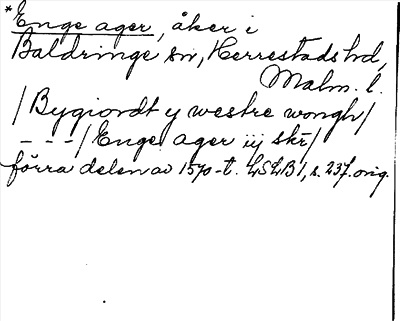 *Enge ager, åker i
Baldringe sn, Herrestads hd,
Malm. l.
/Bygiordt y westre wongh/
- - -/Enge ager iij skr/
förra delen av 1570-t. LSLB1, s. 237. orig.